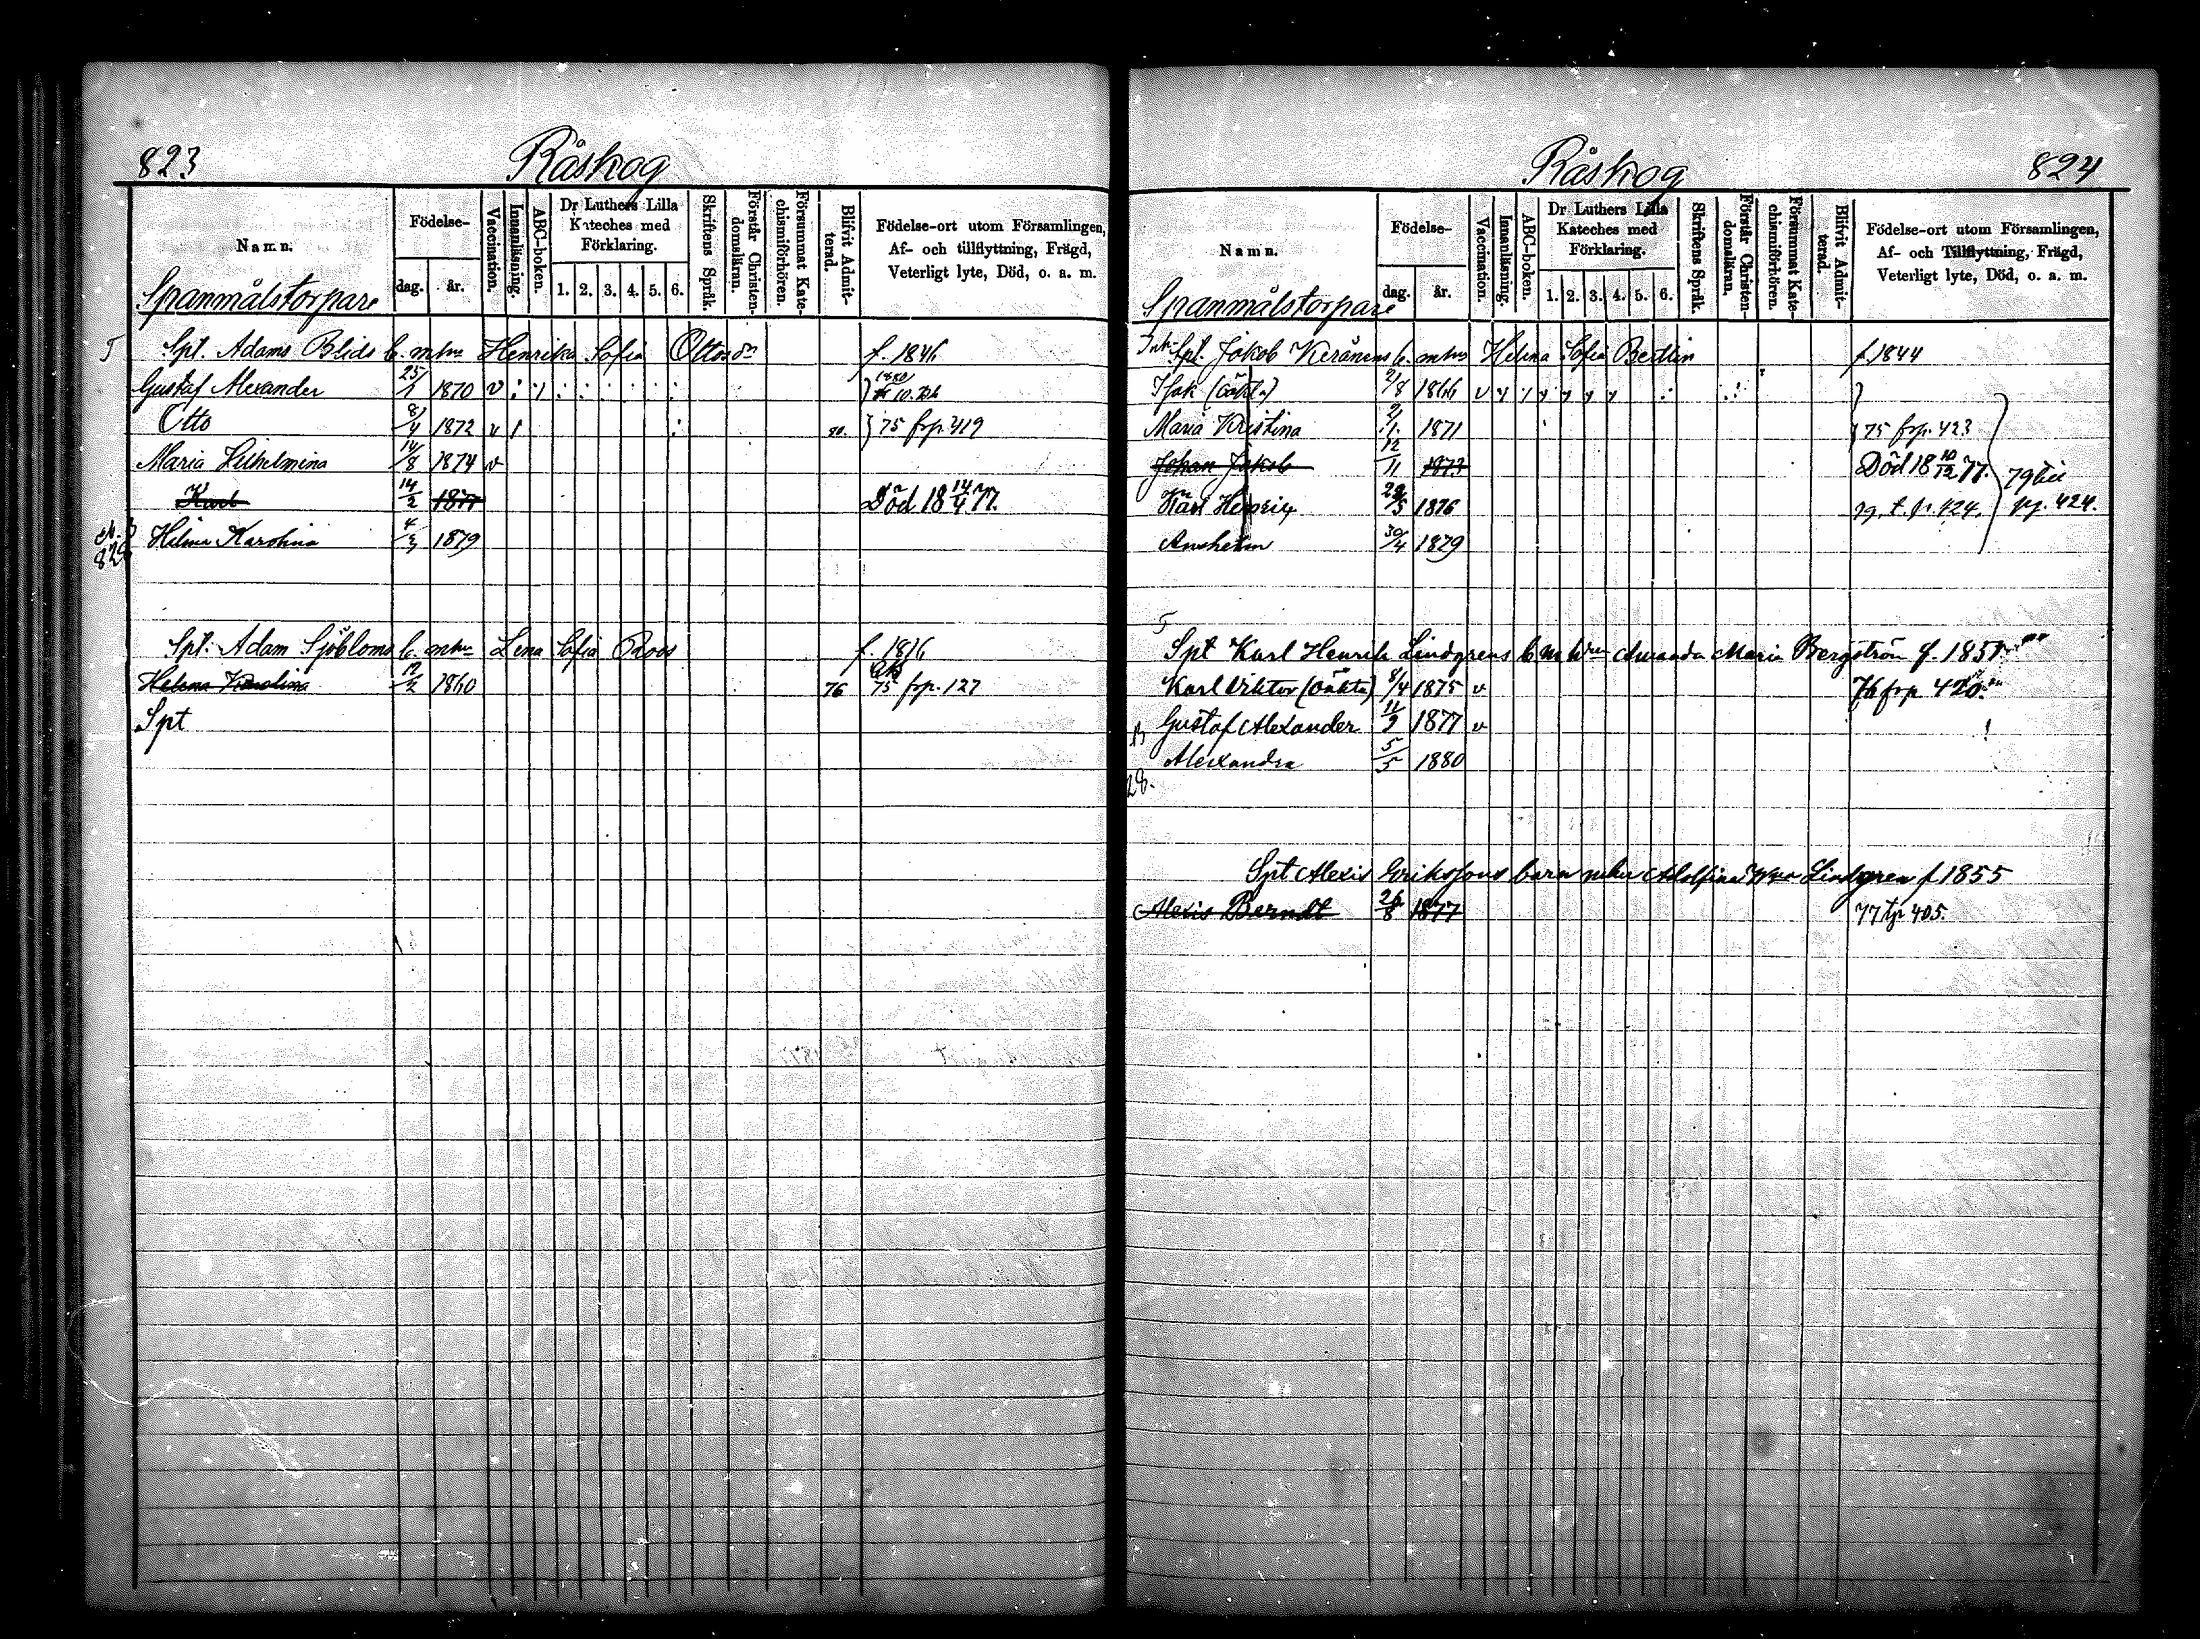 823
Råskog
Namn.
Födelse-
dag. år.
Vaccination.
Innanläsning.
ABC-boken.
Dr Luthers Lilla Kateches med Förklaring.
1. 2. 3. 4. 5. 6.
Skriftens Språk.
Förstår Christen-domsläran.
Försummat Kate-chismiförhören.
Blifvit Admit-terad.
Födelse-ort utom Församlingen,
Af- och tillflyttning, Frägd,
Veterligt lyte, Död, o. a. m.
Spanmålstorpare
Spt. Adams Blids b. m. Henrika Sofia f. 1846
Gustaf Alexander 25/1 1870 v
Otto 8/4 1872 v 75 frp. 419
Maria Vilhelmina 14/8 1874 v
Karl 14/2 1877 Död 18 14/4 77.
Hilma Karolina 4/3 1879
Spt. Adam Sjöbloms b. m. Lena Sofia Roos f. 1816
Helena Karolina 12/2 1860 76 75 frp. 127
Spt
824
Råskog
Namn.
Födelse-
dag. år.
Vaccination.
Innanläsning.
ABC-boken.
Dr Luthers Lilla Kateches med Förklaring.
1. 2. 3. 4. 5. 6.
Skriftens Språk.
Förstår Christen-domsläran.
Försummat Kate-chismiförhören.
Blifvit Admit-terad.
Födelse-ort utom Församlingen,
Af- och Tillflyttning, Frägd,
Veterligt lyte, Död, o. a. m.
Spanmålstorpare
Spt. Jakob Keränens b. Helena Sofia Berttin f. 1844
Isak (oäkta) 1866 v
Maria Kristina 1871 75 frp. 423
Johan Jakob 12/11 1873 Död 18 10/12 77.
Karl Henrik 1876 424.
Anshelm 30/4 1879
Spt Karl Henrik Lindgrens b m Amanda Maria Bergström f. 1851
Karl Viktor (oäkta) 8/4 1875 v 76 frp 420.
Gustaf Alexander 11/9 1877 v
Alexandra 5/5 1880
28.
Spt Alexis Erikssons barn Adolfina Lindgren f 1855
Alexis Berndt 26/8 1877 77 tp 405.